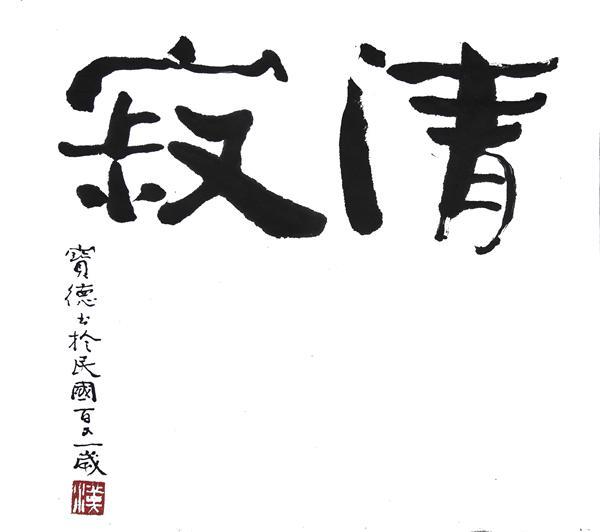 清寂
寶德书於民國百又一歲
漢